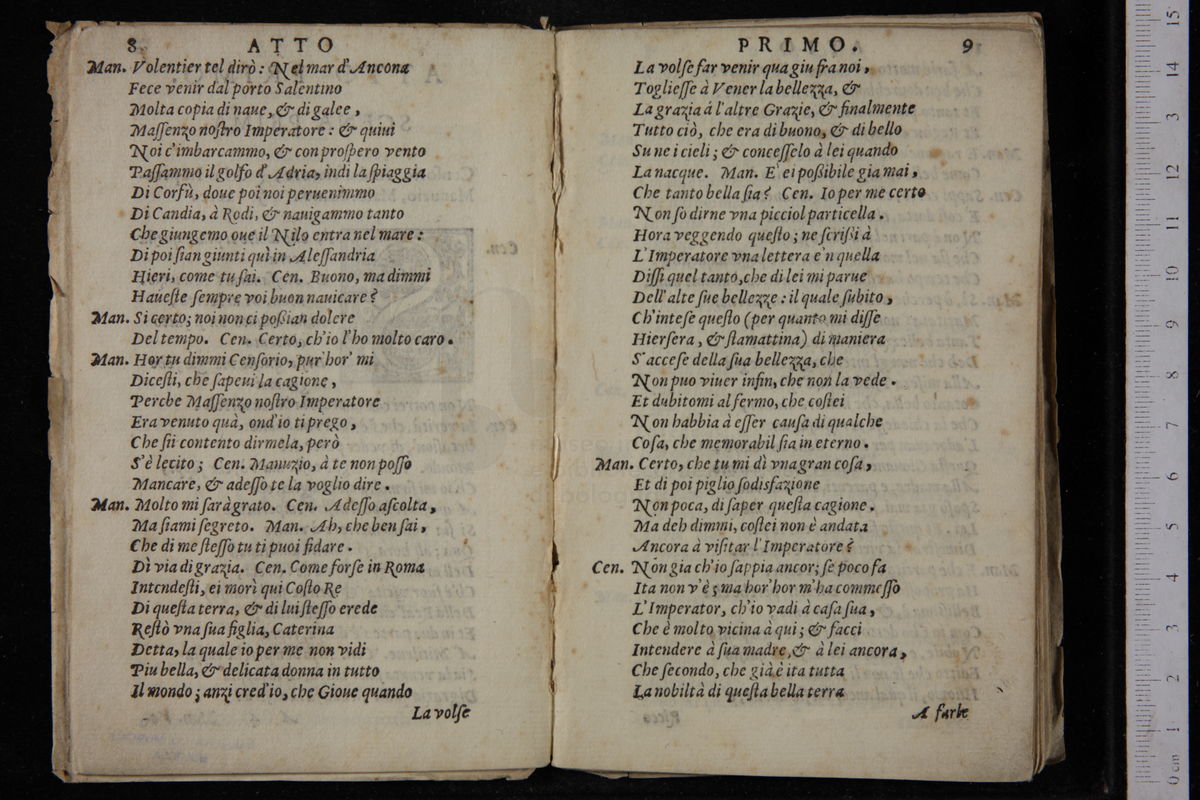 8 ATTO
Man. Volentier tel dirò: Nel mar d'Ancona
Fece venir dal porto Salentino
Molta copia di naue, & di galee,
Maſſenzo noſtro Imperatore: & quiui
Noi c'imbarcammo, & con proſpero vento
Paſſammo il golfo d'Adria, indi la ſpiaggia
Di Corfù, doue poi noi peruenimmo
Di Candia, à Rodi, & nauigammo tanto
Che giungemo oue il Nilo entra nel mare:
Di poi ſian giunti quì in Aleſſandria
Hieri, come tu ſai. Cen. Buono, ma dimmi
Haueſte ſempre voi buon nauicare?
Man. Si certo; noi non ci poßian dolere
Del tempo. Cen. Certo, ch'io l'ho molto caro.
Man. Hor tu dimmi Cenſorio, pur'hor' mi
Diceſti, che ſapeui la cagione,
Perche Maſſenzo noſtro Imperatore
Era venuto quà, ond'io ti prego,
Che ſii contento dirmela, però
S'è lecito; Cen. Manuzio, à te non poſſo
Mancare, & adeſſo te la voglio dire.
Man. Molto mi ſarà grato. Cen. Adeſſo aſcolta,
Ma ſiami ſegreto. Man. Ah, che ben ſai,
Che di me ſteſſo tu ti puoi fidare.
Dì via di grazia. Cen. Come forſe in Roma
Intendeſti, ei morì qui Coſto Re
Di queſta terra, & di lui ſteſſo erede
Reſtò vna ſua figlia, Caterina
Detta, la quale io per me non vidi
Piu bella, & delicata donna in tutto
Il mondo; anzi cred'io, che Gioue quando
La volſe
PRIMO. 9
La volſe far venir qua giu fra noi,
Toglieſſe à Vener la bellezza, &
La grazia á l'altre Grazie, & finalmente
Tutto ciò, che era di buono, & di bello
Su ne i cieli; & conceſſelo à lei quando
La nacque. Man. E' ei poßibile gia mai,
Che tanto bella ſia? Cen. Io per me certo
Non ſo dirne vna picciol particella.
Hora veggendo queſto; ne ſcrißi à
L'Imperatore vna lettera e'n quella
Diſſi quel tanto, che di lei mi parue
Dell'alte ſue bellezze: il quale ſubito,
Ch'inteſe queſto (per quanto mi diſſe
Hierſera, & ſtamattina) di maniera
S'acceſe della ſua bellezza, che
Non puo viuer infin, che non la vede.
Et dubitomi al fermo, che coſtei
Non habbia à eſſer cauſa di qualche
Coſa, che memorabil ſia in eterno.
Man. Certo, che tu mi dì vna gran coſa,
Et di poi piglio ſodisfazione
Non poca, di ſaper queſta cagione.
Ma deh dimmi, coſtei non è andata
Ancora à viſitar l'Imperatore?
Cen. Non gia ch'io ſappia ancor; ſe poco fa
Ita non v'è; ma hor'hor m'ha commeſſo
L'Imperator, ch'io vadi à caſa ſua,
Che è molto vicina à qui; & facci
Intendere à ſua madre, & à lei ancora,
Che ſecondo, che già è ita tutta
La nobiltà di queſta bella terra
A farle
15
14
13
12
11
10
9
8
7
6
5
4
3
2
1
0 cm